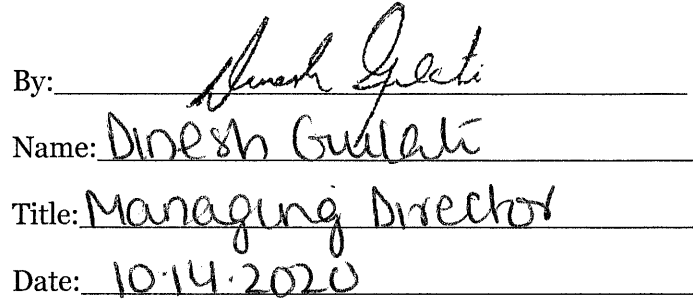 By: Dinesh Gulati
Name: Dinesh Gulati
Title: Managing Director
Date: 10.14.2020